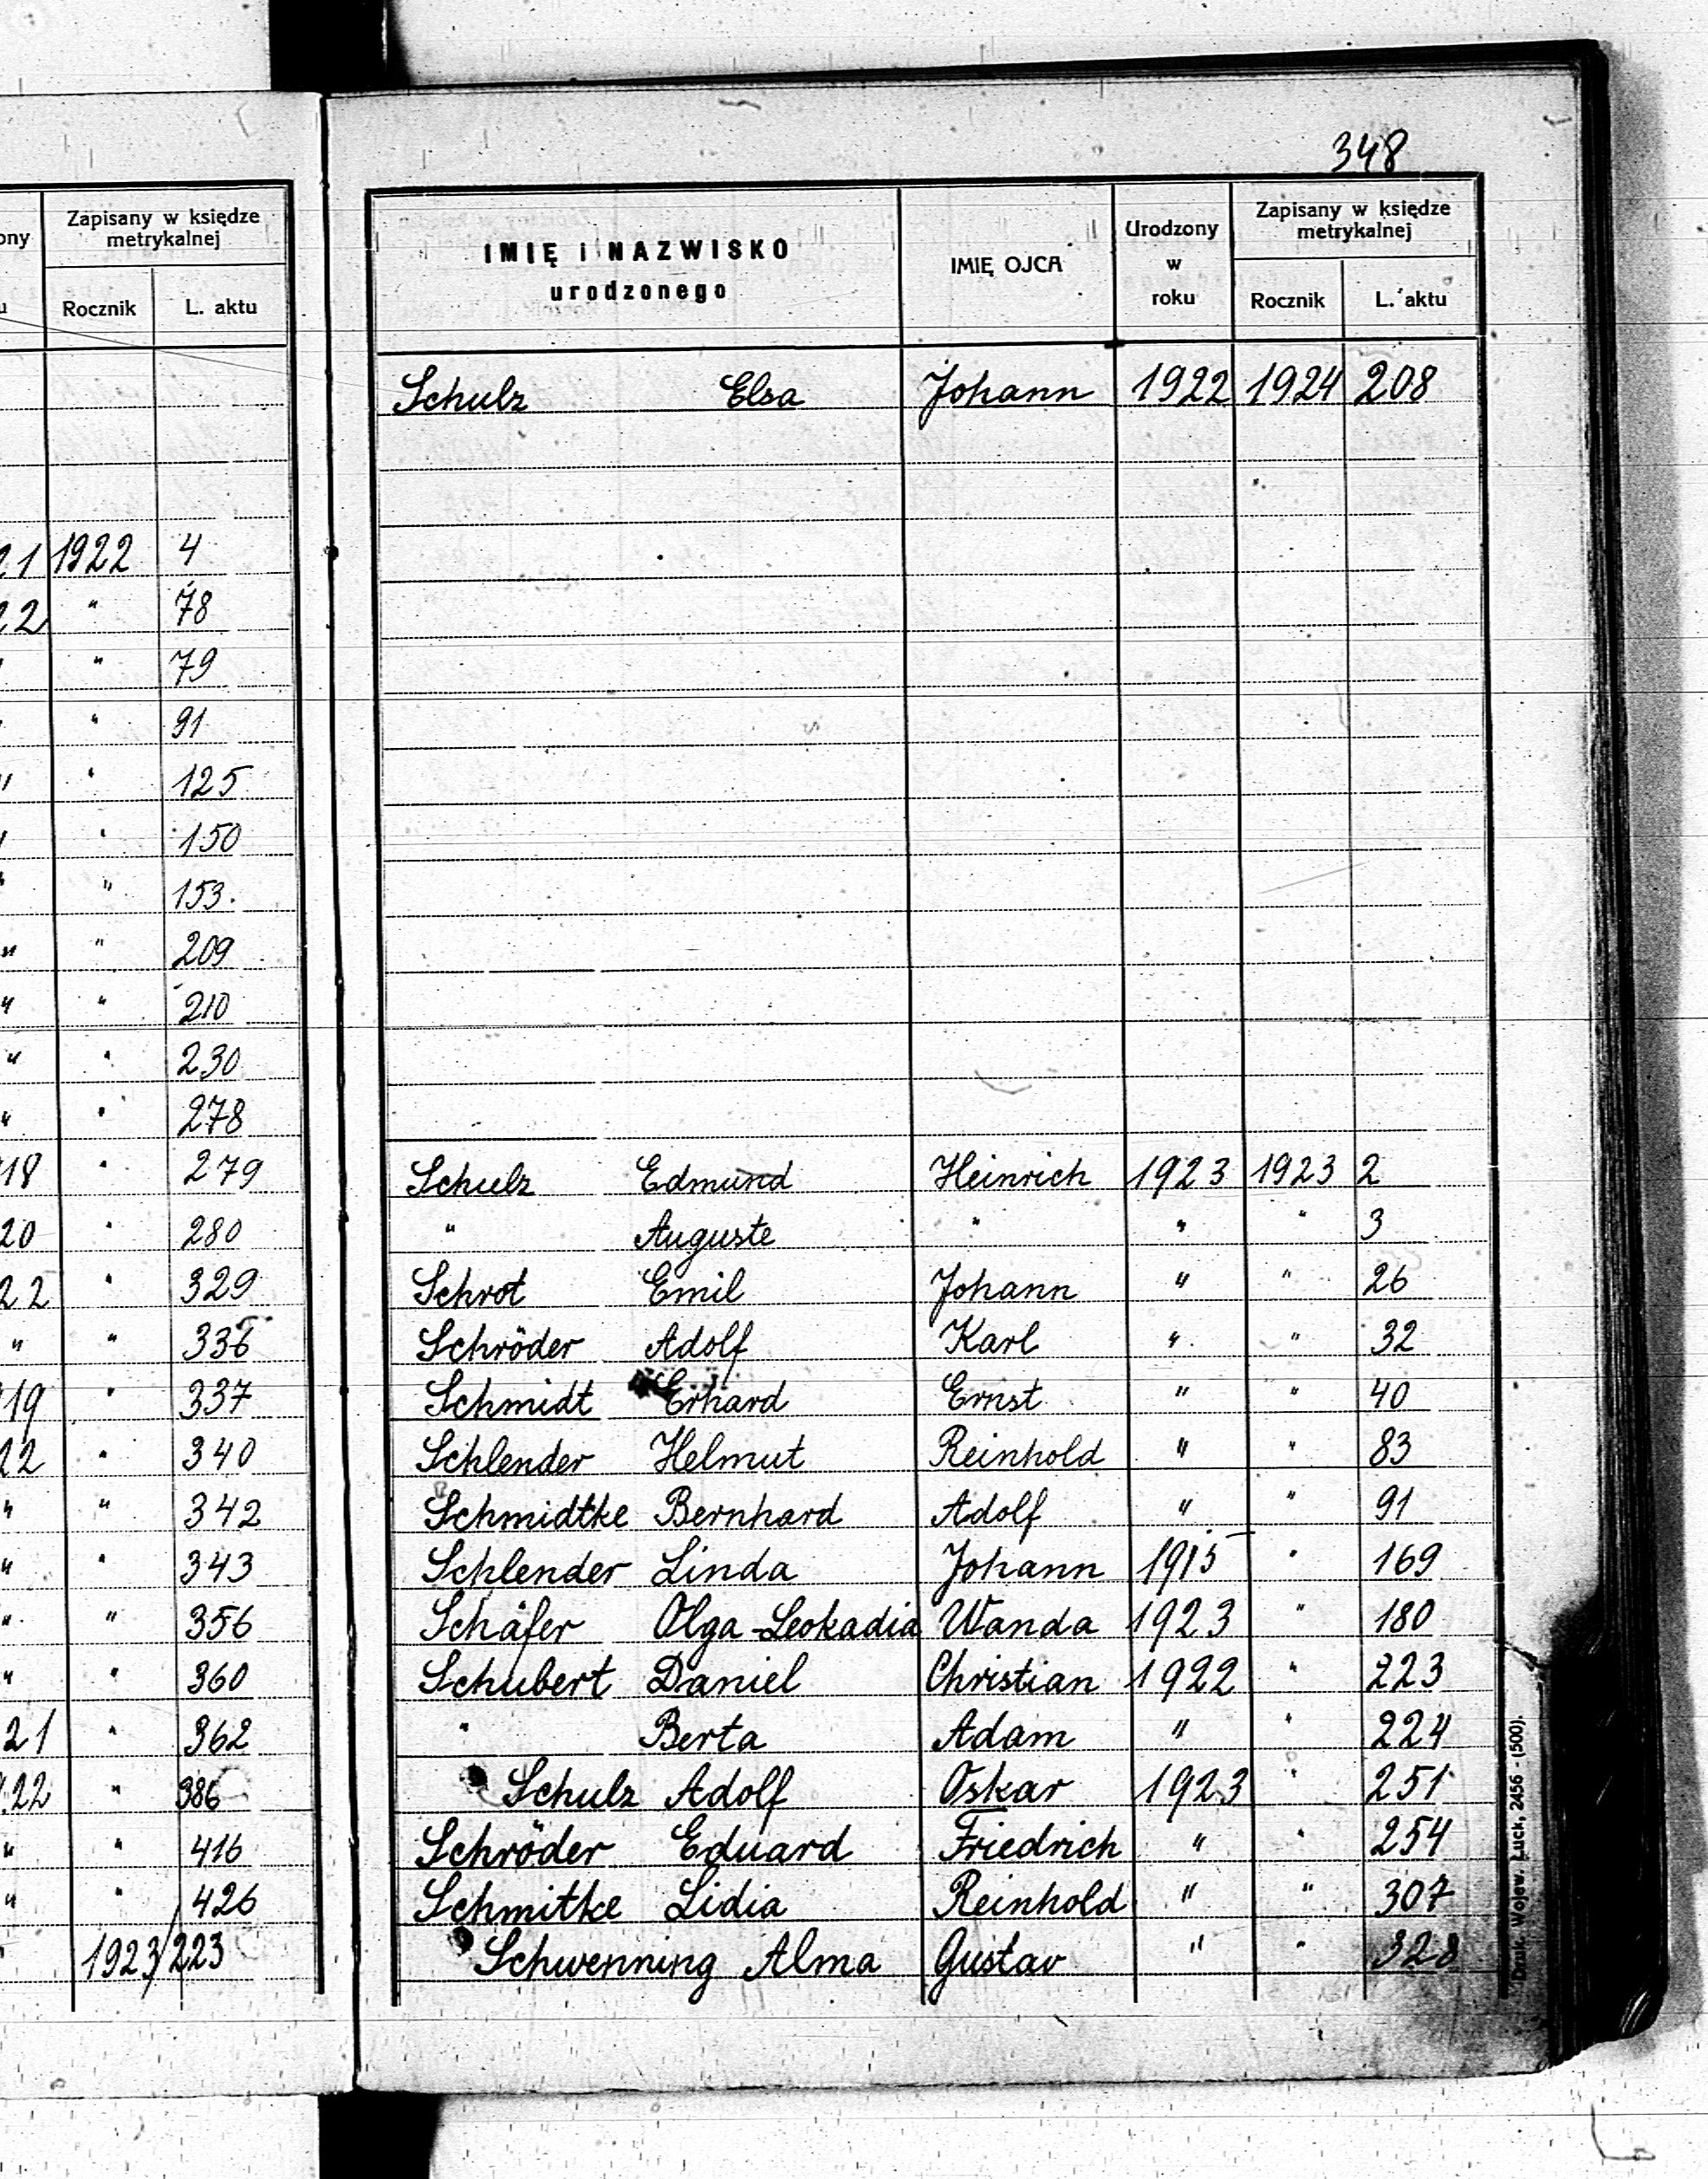 348
ony
Zapisany w księdze
metrykalnej
u
Rocznik L. aktu
21 1922 4
22 " 78
" " 79
" " 91
" " 125
" " 150
" " 153.
" " 209
" " 210
" " 230
" " 278
18 " 279
20 " 280
22 " 329
" " 336
19 " 337
22 " 340
" " 342
" " 343
" " 356
" " 360
21 " 362
22 " 386
" " 416
" " 426
" 1923/223
IMIĘ i NAZWISKO
urodzonego
IMIĘ OJCA
Urodzony
w
roku
Zapisany w księdze
metrykalnej
Rocznik L. aktu
Schulz Elsa Johann 1922 1924 208
Schulz Edmund Heinrich 1923 1923 2
" Auguste " " " 3
Schrot Emil Johann " " 26
Schröder Adolf Karl " " 32
Schmidt Erhard Ernst " " 40
Schlender Helmut Reinhold " " 83
Schmidtke Bernhard Adolf " " 91
Schlender Linda Johann 1915 " 169
Schäfer Olga-Leokadia Wanda 1923 " 180
Schubert Daniel Christian 1922 " 223
" Berta Adam " " 224
Schulz Adolf Oskar 1923 " 251
Schröder Eduard Friedrich " " 254
Schmitke Lidia Reinhold " " 307
Schwenning Alma Gustav " " 328
Druk. Wojew. Łuck, 2456 - (500).